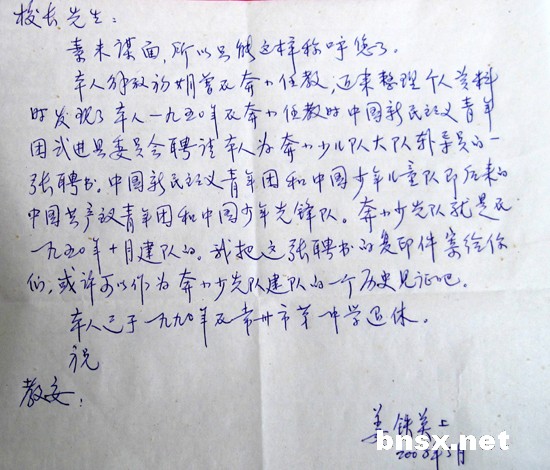 校长先生：
素未谋面，所以只能这样称呼您了。
本人解放初期曾在奔小任教，近来整理个人资料
时发现了本人一九五〇年在奔小任教时中国新民主主义青年
团武进县委员会聘请本人为奔小少儿队大队辅导员的一
张聘书。中国新民主主义青年团和中国少年儿童队即后来的
中国共产主义青年团和中国少年先锋队。奔小少先队就是在
一九五〇年十月建队的。我把这张聘书的复印件寄给你
们，或许可以作为奔小少先队建队的一个历史见证吧。
本人已于一九九〇年在常州市第一中学退休。
祝
教安！
姜铁英上
2008年3月
bnsx.net